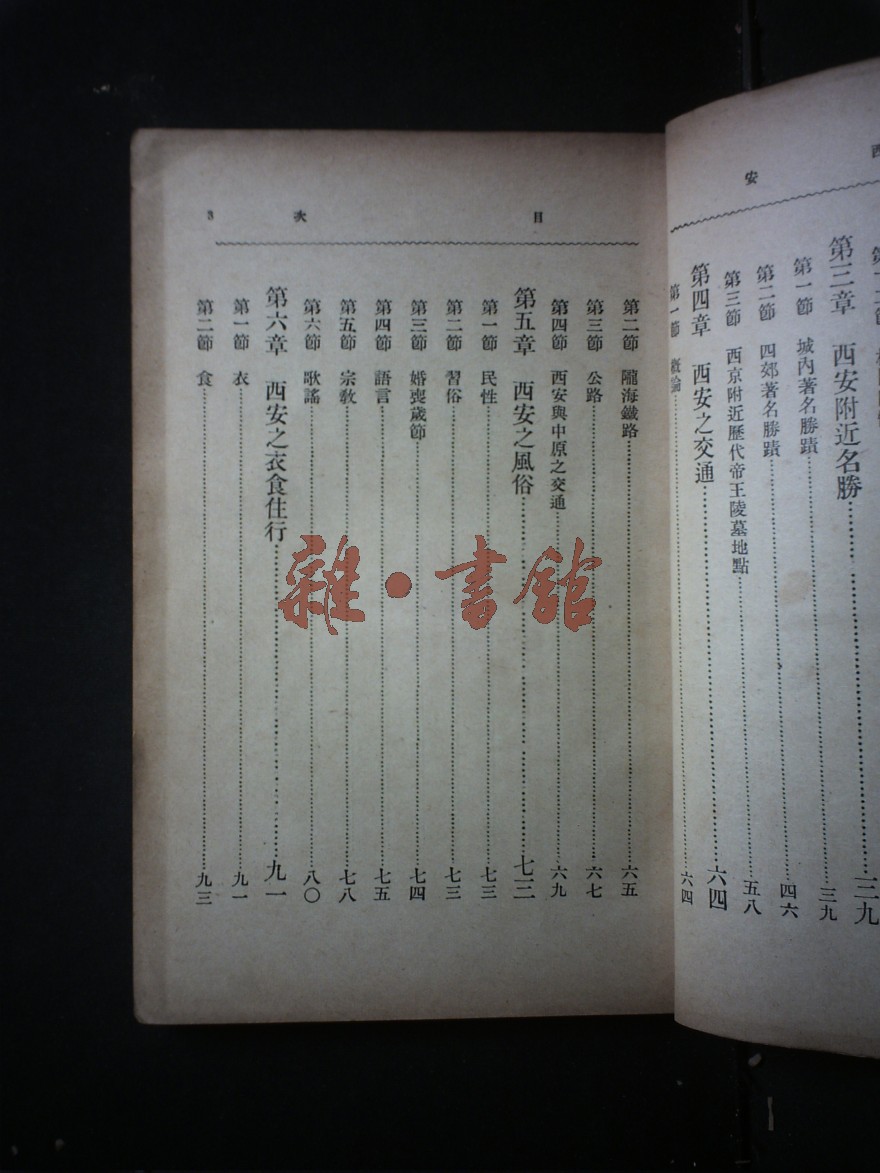 西安
第三章 西安附近名勝……三九
第一節 城內著名勝蹟……三九
第二節 四郊著名勝蹟……四六
第三節 西京附近歷代帝王陵墓地點……五八
第四章 西安之交通……六四
第一節 概論……六四
目次 3
第二節 隴海鐵路……六五
第三節 公路……六七
第四節 西安與中原之交通……六九
第五章 西安之風俗……七三
第一節 民性……七三
第二節 習俗……七三
第三節 婚喪歲節……七四
第四節 語言……七五
第五節 宗教……七八
第六節 歌謠……八〇
第六章 西安之衣食住行……九一
第一節 衣……九一
第二節 食……九三
雜·書館